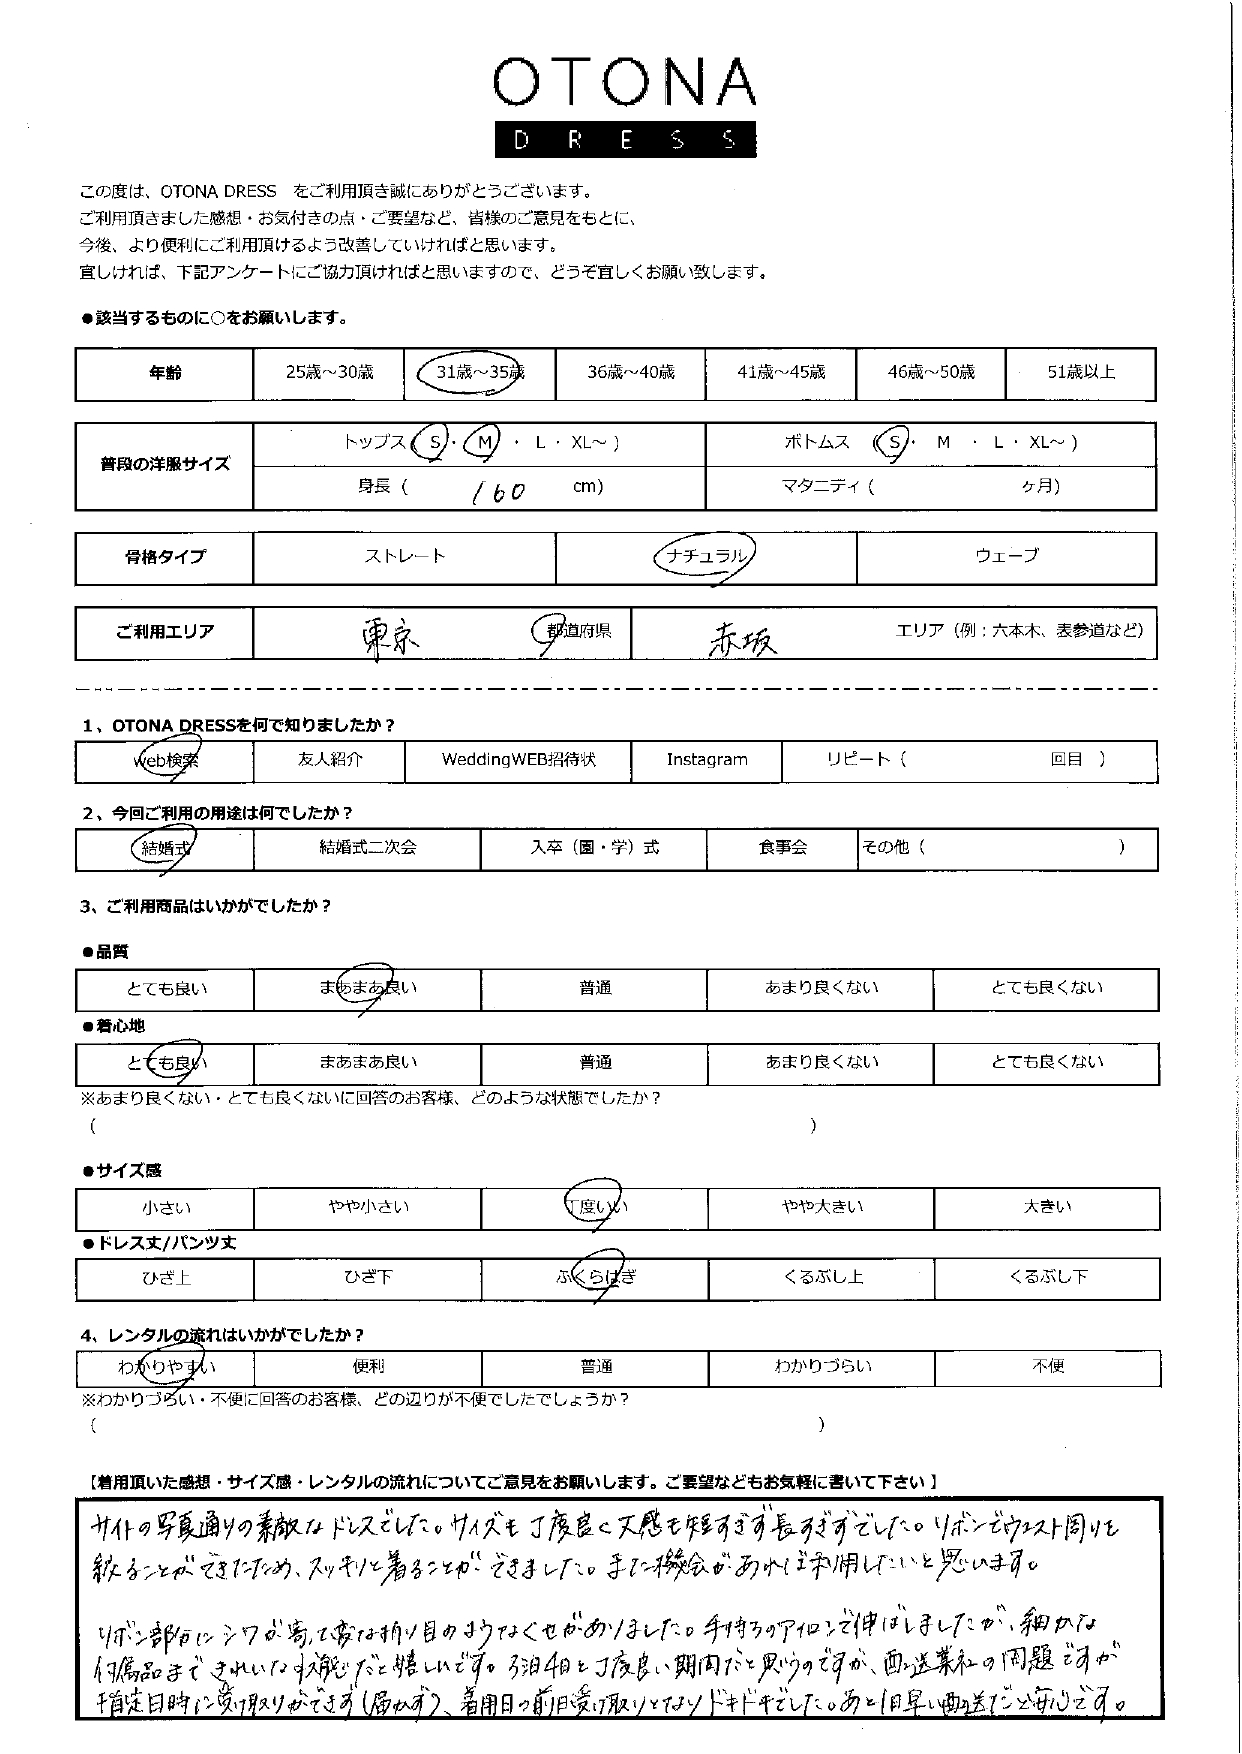 OTONA
DRESS
この度は、OTONA DRESS をご利用頂き誠にありがとうございます。
ご利用頂きました感想・お気付きの点・ご要望など、皆様のご意見をもとに、
今後、より便利にご利用頂けるよう改善していければと思います。
宜しければ、下記アンケートにご協力頂ければと思いますので、どうぞ宜しくお願い致します。
●該当するものに○をお願いします。
年齢 25歳～30歳 31歳～35歳 36歳～40歳 41歳～45歳 46歳～50歳 51歳以上
普段の洋服サイズ トップス ( S ・ M ・ L ・ XL～ ) ボトムス ( S ・ M ・ L ・ XL～ )
身長 ( 160 cm) マタニティ ( ヶ月)
骨格タイプ ストレート ナチュラル ウェーブ
ご利用エリア 東京 都道府県 赤坂 エリア（例：六本木、表参道など）
1、OTONA DRESSを何で知りましたか？
Web検索 友人紹介 WeddingWEB招待状 Instagram リピート（ 回目 ）
2、今回ご利用の用途は何でしたか？
結婚式 結婚式二次会 入卒（園・学）式 食事会 その他（ ）
3、ご利用商品はいかがでしたか？
●品質
とても良い まあまあ良い 普通 あまり良くない とても良くない
●着心地
とても良い まあまあ良い 普通 あまり良くない とても良くない
※あまり良くない・とても良くないに回答のお客様、どのような状態でしたか？
( )
●サイズ感
小さい やや小さい 丁度いい やや大きい 大きい
●ドレス丈/パンツ丈
ひざ上 ひざ下 ふくらはぎ くるぶし上 くるぶし下
4、レンタルの流れはいかがでしたか？
わかりやすい 便利 普通 わかりづらい 不便
※わかりづらい・不便に回答のお客様、どの辺りが不便でしたでしょうか？
( )
【着用頂いた感想・サイズ感・レンタルの流れについてご意見をお願いします。ご要望などもお気軽に書いて下さい】
サイトの写真通りの素敵なドレスでした。サイズも丁度良く丈感も短すぎず長すぎずでした。リボンでウエスト周りを
絞ることができたため、スッキリと着ることができました。また機会があれば利用したいと思います。
リボン部分にシワが寄って変な折り目のようなくせがありました。手持ちのアイロンで伸ばしましたが、細かな
付属品まできれいな状態だと嬉しいです。3泊4日と丁度良い期間だと思うのですが、配送業社の問題ですが
指定日時に受け取りができず(届かず)、着用日の前日受け取りとなりドキドキでした。あと1日早い配送だと安心です。